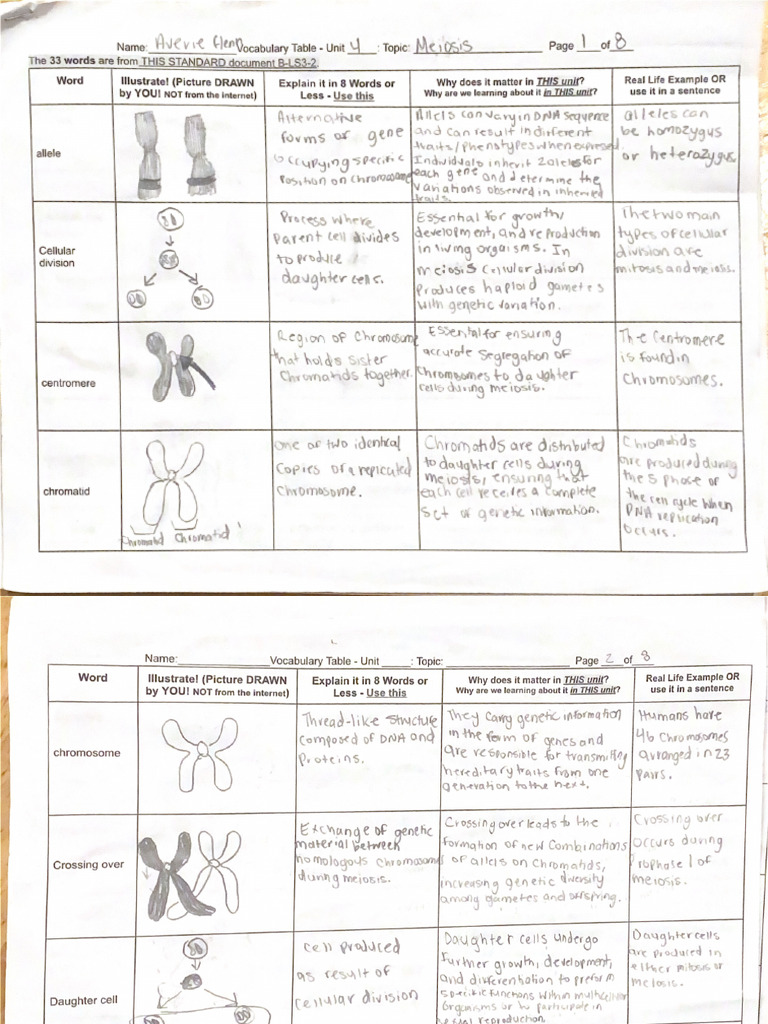 Name: Averie Glenn Vocabulary Table - Unit 4 : Topic: Meiosis Page 1 of 8
The 33 words are from THIS STANDARD document B-LS3-2.
Word
Illustrate! (Picture DRAWN
by YOU! NOT from the internet)
Explain it in 8 Words or
Less - Use this
Why does it matter in THIS unit?
Why are we learning about it in THIS unit?
Real Life Example OR
use it in a sentence
allele
Alternative
forms of gene
occupying specific
position on chromosome
Allels can vary in DNA sequence
and can result in different
traits/phenotypes when expressed.
Individuals inherit 2 alleles for
each gene and determine the
variations observed in inherited
traits.
alleles can
be homozygus
or heterozygus.
Cellular
division
Process where
parent cell divides
to produce
daughter cells.
Essential for growth,
development, and reproduction
in living orgaisms. In
meiosis cellular division
produces haploid gametes
with genetic variation.
The two main
types of cellular
division are
mitosis and meiosis.
centromere
Region of Chromosome
that holds sister
Chromatids together.
Essental for ensuring
accurate segregation of
Chromosomes to daughter
cells during meiosis.
The Centromere
is found in
Chromosomes.
chromatid
Chromatid Chromatid
one of two identical
copies of a replicated
chromosome.
Chromatids are distributed
to daughter cells during
meiosis, ensuring that
each cell receives a complete
set of genetic information.
Chromatids
are produced during
the S phase of
the cell cycle when
DNA replication
occurs.
Name: Vocabulary Table - Unit : Topic: Page 2 of 8
Word
Illustrate! (Picture DRAWN
by YOU! NOT from the internet)
Explain it in 8 Words or
Less - Use this
Why does it matter in THIS unit?
Why are we learning about it in THIS unit?
Real Life Example OR
use it in a sentence
chromosome
Thread-like structure
composed of DNA and
Proteins.
They carry genetic information
in the form of genes and
are responsible for transmitting
hereditary traits from one
generation to the next.
Humans have
46 Chromosomes
arranged in 23
pairs.
Crossing over
Exchange of genetic
material between
homologous chromosomes
during meiosis.
Crossing over leads to the
formation of new combinations
of allels on chromatids,
increasing genetic diversity
among gametes and offspring.
Crossing over
occurs during
Prophase 1 of
meiosis.
Daughter cell
cell produced
as result of
cellular division
Daughter cells undergo
further growth, development,
and differentiation to preform
specific functions within multicellular
organisms or to participate in
sexual reproduction.
Daughter cells
are produced in
either mitosis or
meiosis.